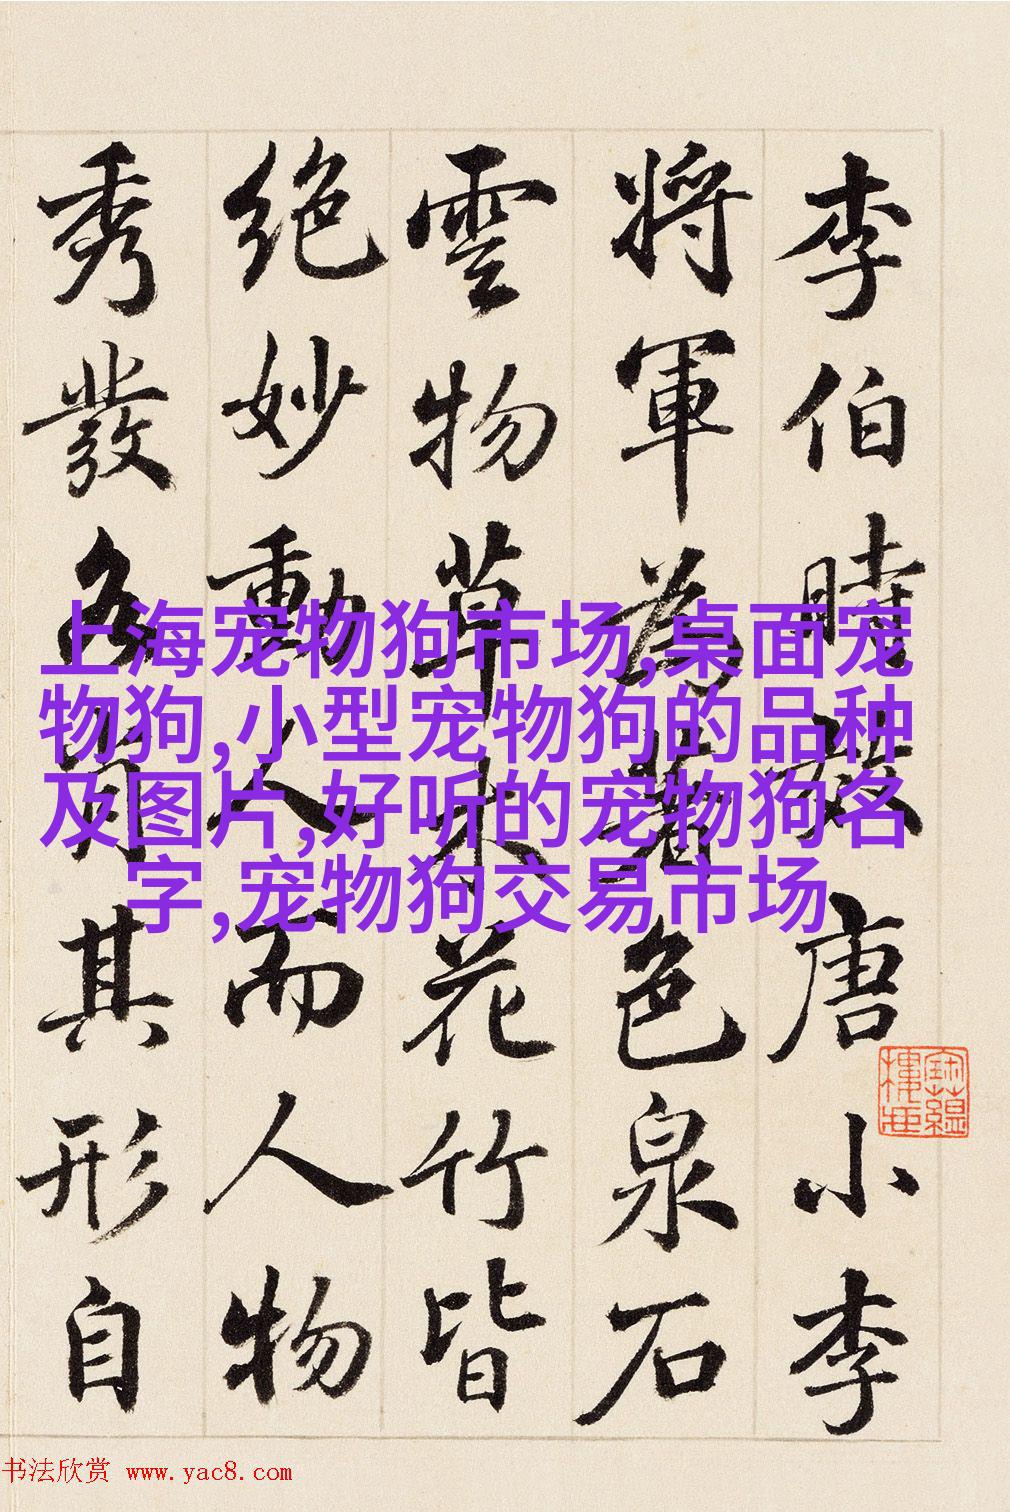 李伯時效唐小李
將軍為著色泉石
雲物草木花竹皆
絕妙動人而人物
秀發各肖其形自
上海宠物狗市场,桌面宠
物狗,小型宠物狗的品种
及图片,好听的宠物狗名
字,宠物狗交易市场
书法欣赏 www.yac8.com